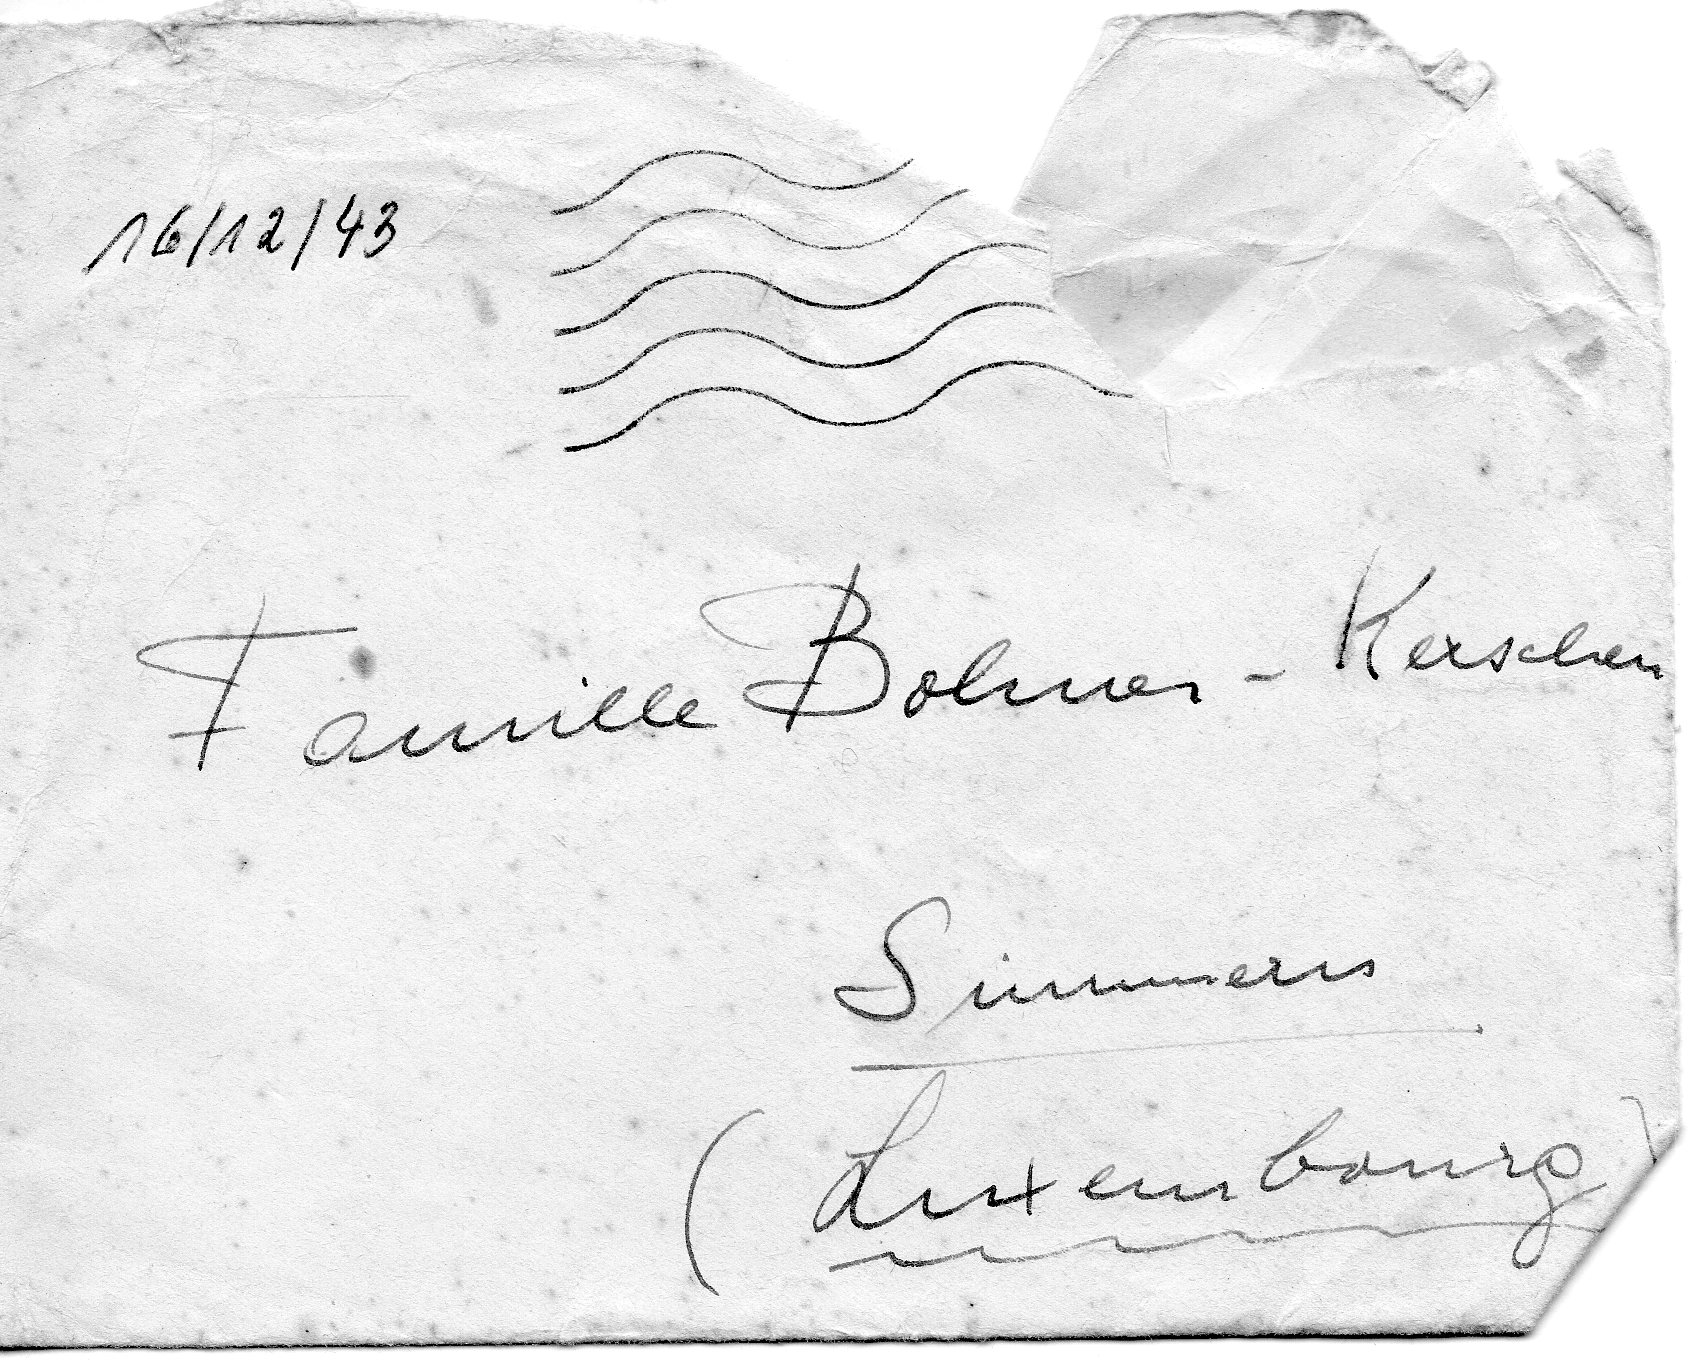 16/12/43
Famille Bolmer - Kerschen
Simmern
(Luxembourg)